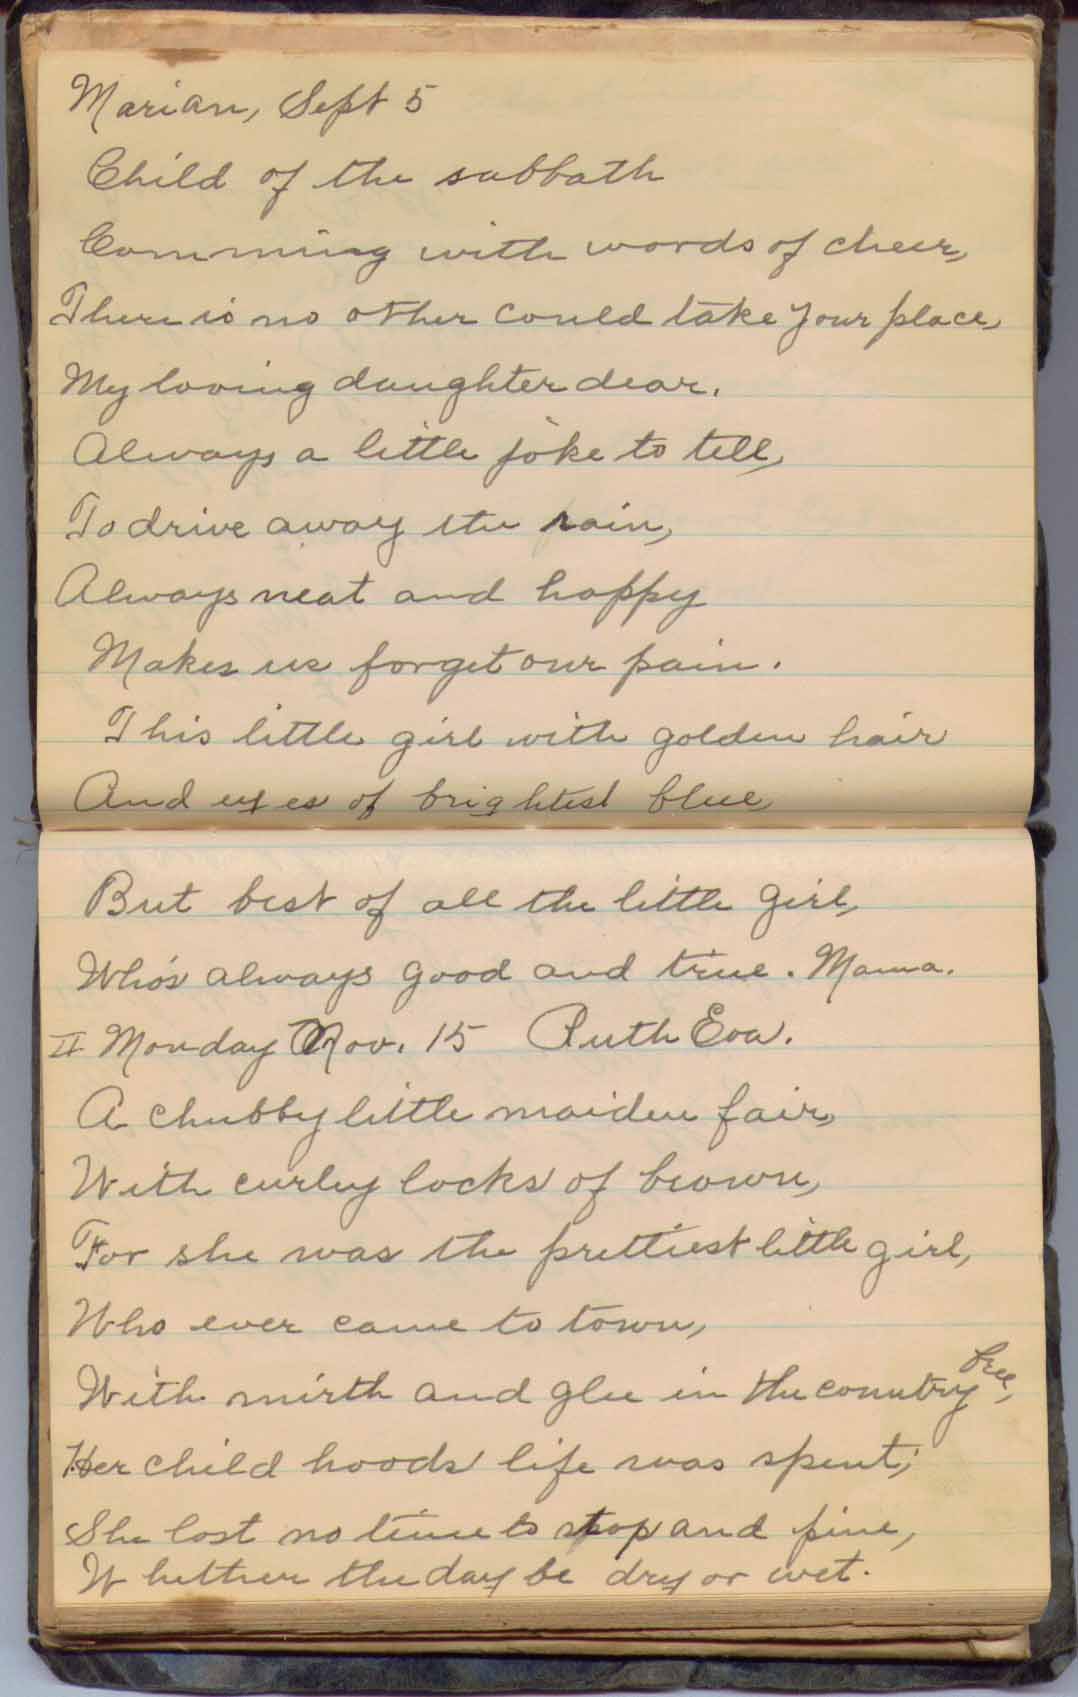 Marian, Sept 5
Child of the sabbath
Comming with words of cheer,
There is no other could take your place,
My loving daughter dear.
Always a little joke to tell,
To drive away the rain,
Always neat and happy
Makes us forget our pain.
This little girl with golden hair
And eyes of brightest blue
But best of all the little girl,
Who's always good and true. Mama.
II Monday Nov. 15 Ruth Eva.
A chubby little maiden fair,
With curley locks of brown,
For she was the prettiest little girl,
Who ever came to town,
With mirth and glee in the country free,
Her child hoods life was spent;
She lost no time to stop and pine,
Whether the day be dry or wet.